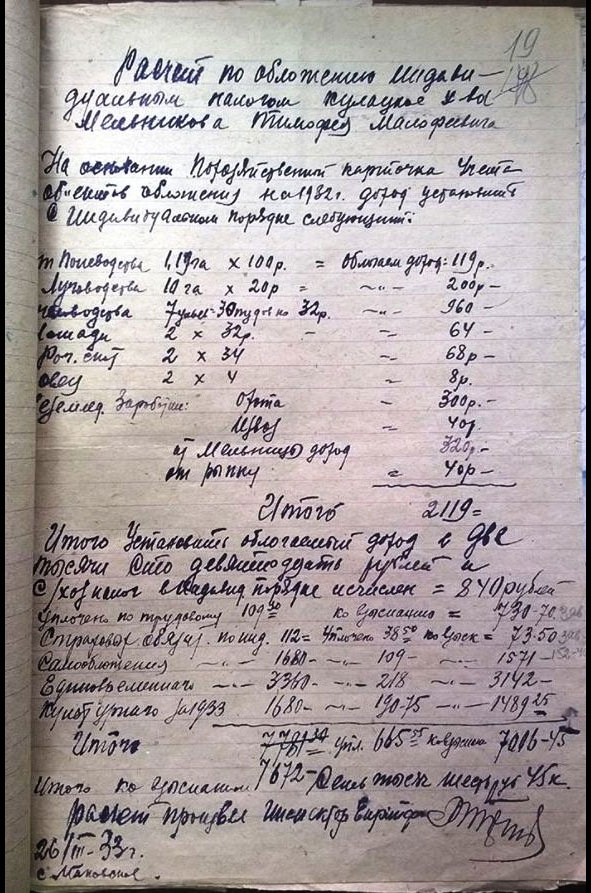 19
Расчет по обложению индиви-
дуальным налогом кулацкое х-во
Мельникова Тимофея Малофеевича
На основании Похозяйственной карточки учета
об'ектов обложения на 1932 г. доход установить
в индивидуальном порядке следующий:
от Полеводства 1,19 га х 100р. = Облагаем доход: 119р.
Луговодства 10 га х 20р = -"- 200р-
7 ульев - 30 пудов по 32р. -"- 960-
2 х 32р. - = 64-
Рог. скот 2 х 34 = 68р-
овец 2 х 4 = 8р.
Заработки: Охота - 300р.-
Извоз = 40р.
от Мельницы доход 320р.-
от рынку = 40р-
Итого 2119=
Итого Установить облагаемый доход в две
тысячи сто девятнадцать рублей и
с/хоз налог в индивид порядке исчислен = 840 рублей
Уплочено по трудовому 109 30 ко взысканию = 730-70
Страховых обязат. по инд. 112= Уплочено 38 50 ко взыск = 73-50
Самообложения -"- 1680- -"- 109- -"- 1571-
Единовременного -"- 3360- -"- 218 -"- 3142-
Культурного за 1933 1680- -"- 190-75 -"- 1489 25
Итого упл. 665 55 ко взысканию 7006-45
Итого ко взысканию 7672- Семь тысяч шесть руб 45 к.
расчет произвел Инспектор
26/III-33 г.
с. Маковское.